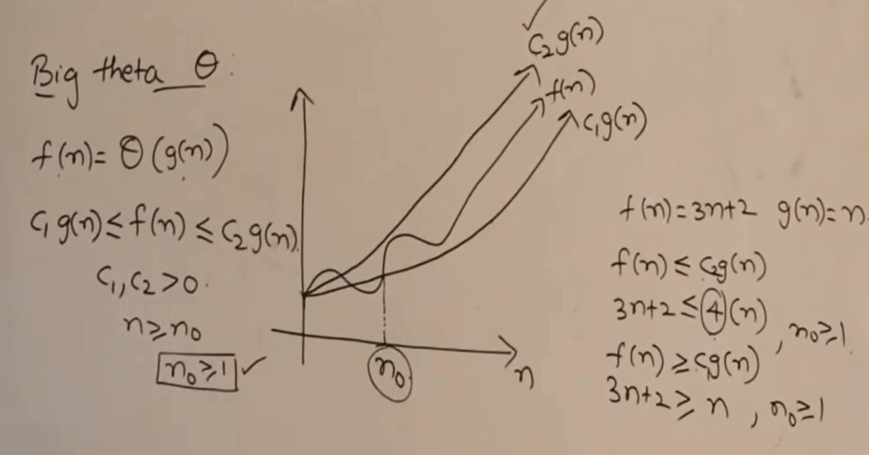 Big theta θ:
f(n) = θ(g(n))
c₁g(n) ≤ f(n) ≤ c₂g(n)
c₁, c₂ > 0.
n ≥ n₀
n₀ ≥ 1 ✓
✓
c₂g(n)
f(n)
c₁g(n)
n₀
n
f(n) = 3n+2 g(n) = n
f(n) ≤ c₂g(n)
3n+2 ≤ 4(n) , n₀ ≥ 1.
f(n) ≥ c₁g(n)
3n+2 ≥ n , n₀ ≥ 1